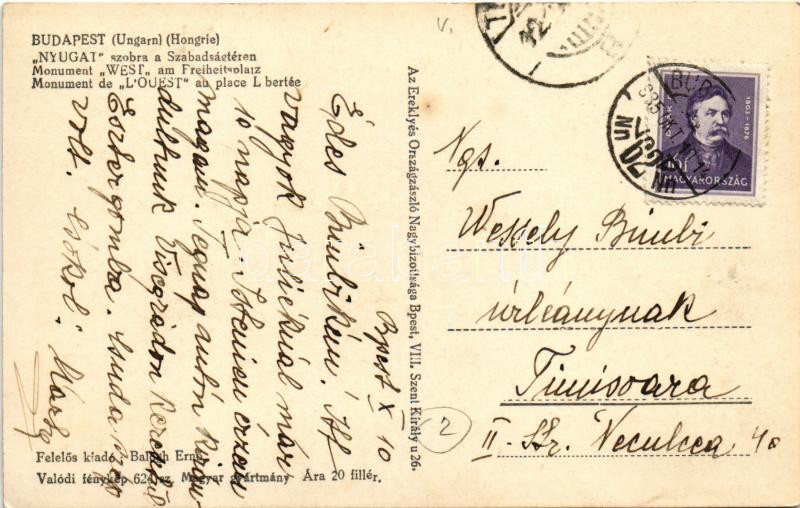 BUDAPEST (Ungarn) (Hongrie)
„NYUGAT" szobra a Szabadságtéren
Monument „WEST" am Freiheitsplatz
Monument de „L'OUEST" au place Libertée
Bpest X 10
Édes Bimbikém! Itt
vagyok Juliéknál már
10 napja. Istenien érzem
magam. Tegnap autón kirán-
dultunk Visegrádon keresztül
Esztergomba. Csuda szép
volt. Csókol:
Az Ereklyés Országzászló Nagybizottsága Bpest, VIII. Szent Király u 26.
Felelős kiadó: Balogh Ernő
Valódi fénykép 624 sz. Magyar gyártmány Ára 20 fillér.
Ngs.
Wessely Bimbi
úrleánynak
Timisoara
II. Str. Neculcea 40
2
MAGYARORSZÁG
1803-1876